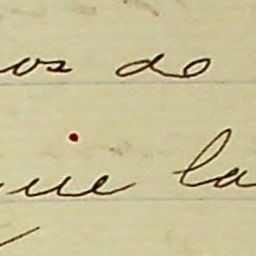 os de
ue la